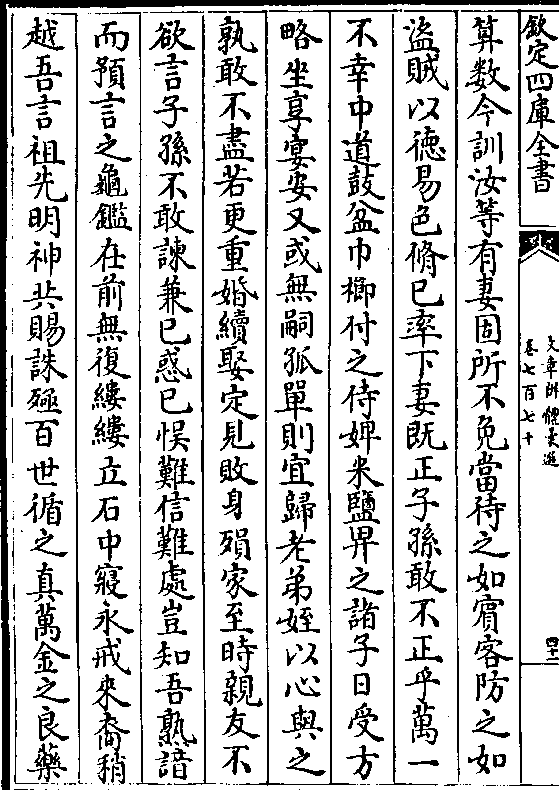 欽定四庫全書
文章辨體彙選
卷七百七十
四十
算数今訓汝等有妻固所不免當待之如賓客防之如
盜賊以德易色脩已率下妻既正子孫敢不正乎萬一
不幸中道鼓盆巾櫛付之侍婢米鹽畀之諸子日受方
略坐享宴安又或無嗣孤單則宜歸老弟姪以心與之
孰敢不盡若更重婚續娶定見敗身殞家至時親友不
欲言子孫不敢諫兼已惑已悞難信難處豈知吾熟諳
而預言之龜鑑在前無復縷縷立石中寢永戒來裔稍
越吾言祖先明神共賜誅殛百世循之真萬金之良藥